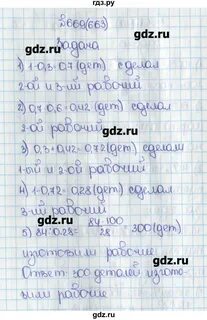 №669(663)
Задача
1) 1-0,3=0,7(дет) сделал
2-ой и 3-ий рабочий
2) 0,7·0,6=0,42 (дет) сделал
2-ой рабочий
3) 0,3+0,42=0,72(дет) сделали
1-ый и 2-ой рабочий
4) 1-0,72=0,28(дет) сделал
3-ий рабочий
5) 84:0,28= 84·100/28 =300(дет)
изготовили рабочие
Ответ: 300 деталей изгото-
вили рабочие
gdz.ru
gdz.ru
gdz.ru
gdz.ru
gdz.ru
gdz.ru
gdz.ru